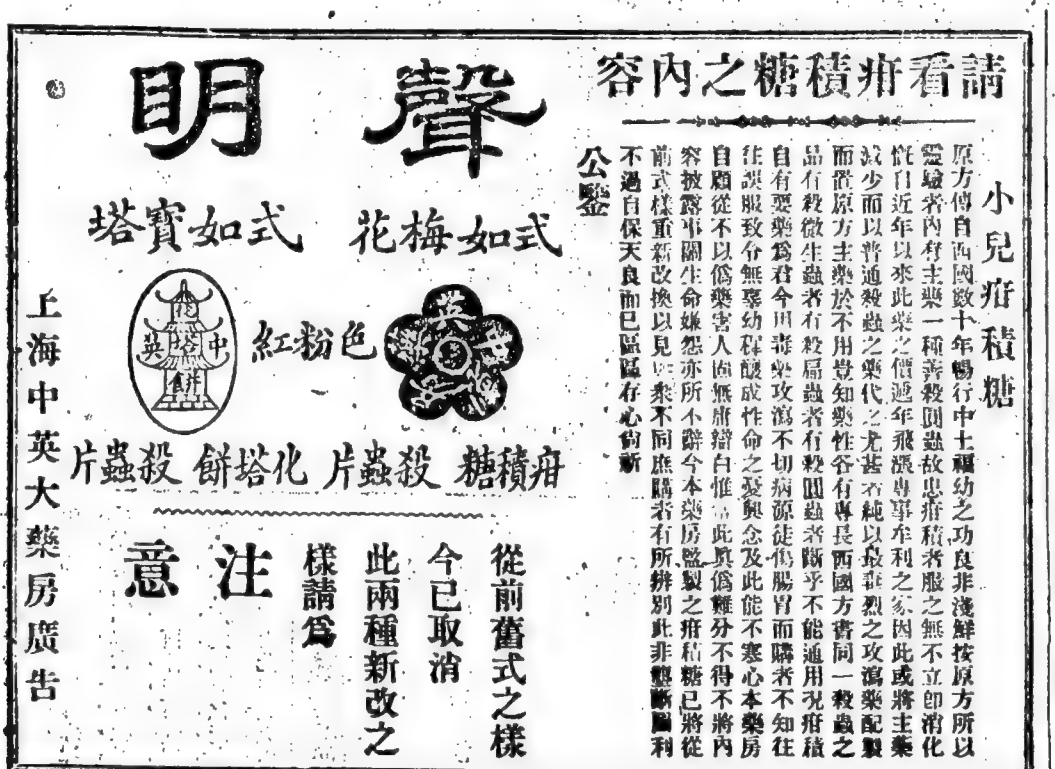 請看疳積糖之內容
小兒疳積糖
原方傳自西國數十年暢行中土福幼之功良非淺鮮按原方所以
靈驗者內有主藥一種善殺圓蟲故患疳積者服之無不立卽消化
慨自近年以來此藥之價遞年飛漲專事牟利之家因此或將主藥
減少而以普通殺蟲之藥代之尤甚者純以最毒烈之攻瀉藥配製
而置原方主藥於不用豈知藥性各有專長西國方書同一殺蟲之
品有殺微生蟲者有殺扁蟲者有殺圓蟲者斷乎不能通用况疳積
自有要藥爲君今用毒藥攻瀉不切病源徒傷腸胃而購者不知往
往誤服致令無辜幼稚釀成性命之憂興念及此能不寒心本藥房
自顧從不以僞藥害人固無庸辯白惟此眞僞難分不得不將內
容披露事關生命嫌怨亦所不辭今本藥房監製之疳積糖已將從
前式樣重新改換以見與衆不同庶購者有所辨別此非壟斷圖利
不過自保天良而已區區存心尙祈
公鑒
聲明
式如梅花
式如寶塔
英
花塔餅
中英
色粉紅
疳積糖
殺蟲片
化塔餅
殺蟲片
從前舊式之樣
今已取消
此兩種新改之
樣請爲
注意
上海中英大藥房廣告